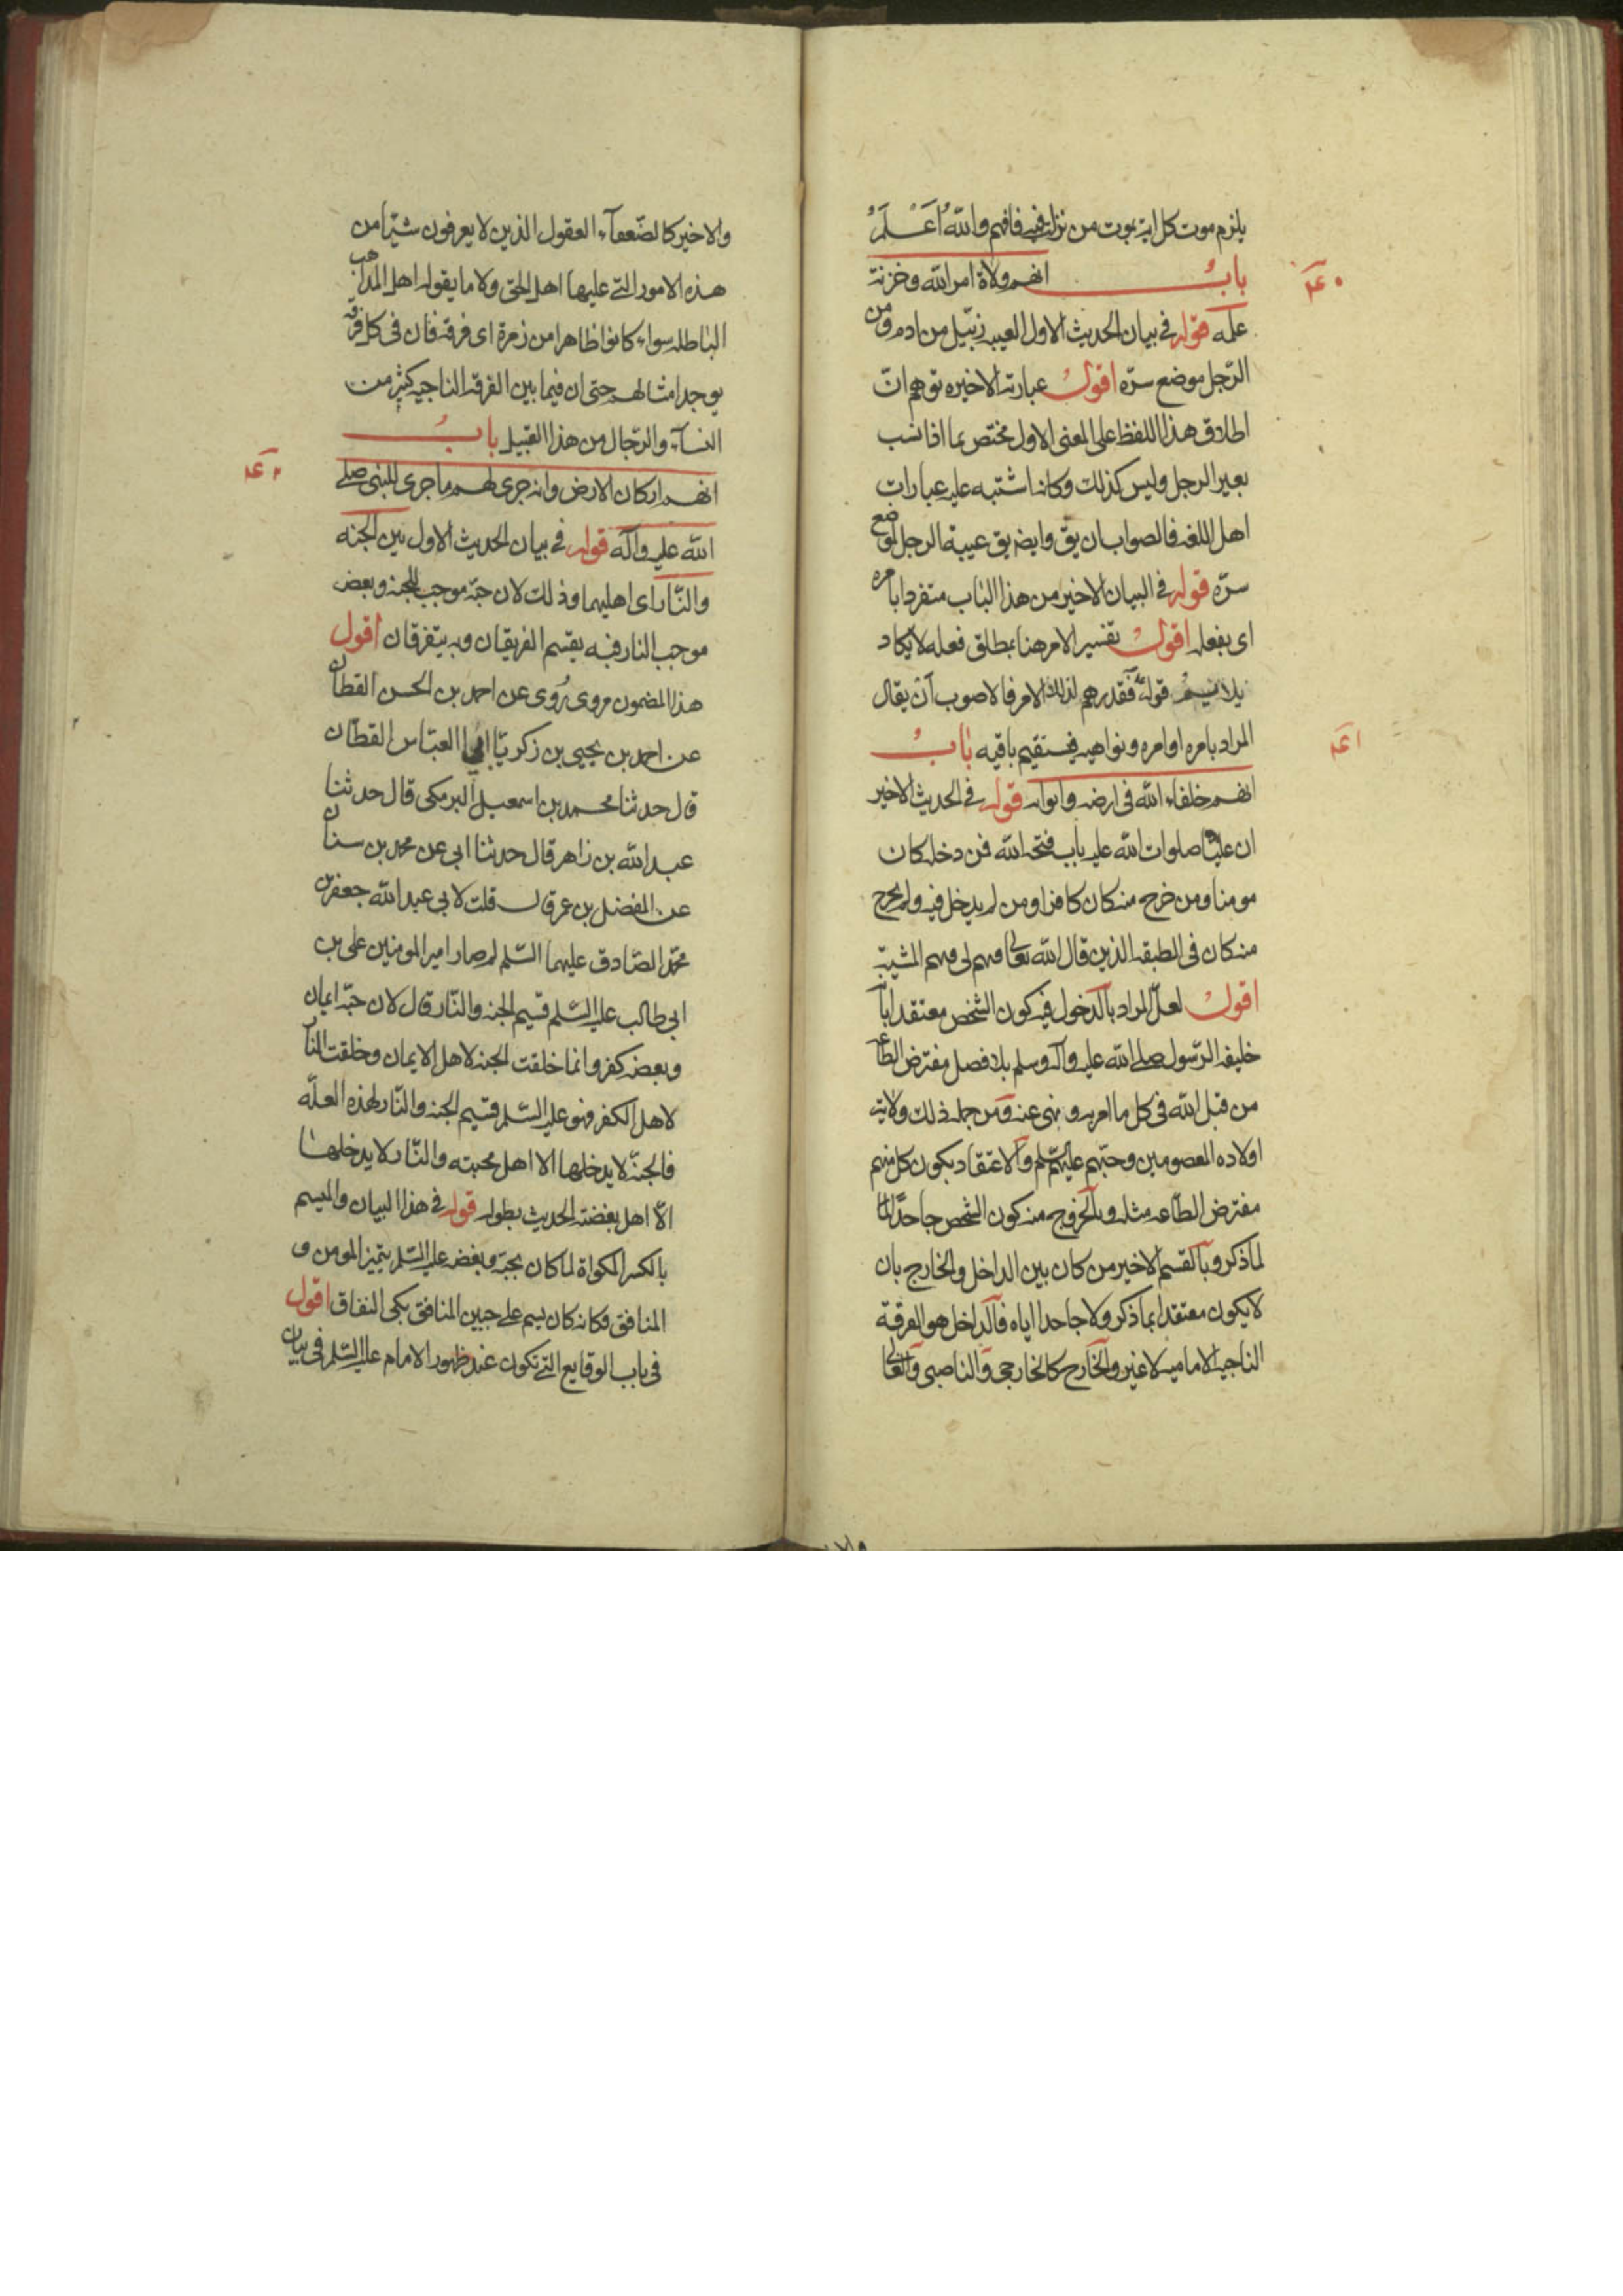 يلزم موت كل اية بموت من نزلت فيه فافهم والله اعلم
باب انهم ولاة امر الله وخزنة
علمه قوله في بيان الحديث الاول العيبه زبيل من ادم ومن
الرجل موضع سره اقول عبارته الاخيره توهم ان
اطلاق هذا اللفظ على المعنى الاول مختص بما اذا نسب
بعير الرجل وليس كذلك وكانه اشتبه عليه عبارات
اهل اللغه فالصواب ان يق وايضه يق عيبة الرجل لموضع
سره قوله في البيان الاخير من هذا الباب متفردا بامره
اى بفعله اقول تفسير الامر هنا بمطلق فعله لا يكاد
يلايم قوله فقدرهم لذلك الامر فالاصوب ان يقال
المراد بامره اوامره ونواهيه فيستقيم باقيه باب
انهم خلفاء الله فى ارضه وابوابه قوله في الحديث الاخير
ان عليا صلوات الله عليه باب فتحه الله فمن دخله كان
مومنا ومن خرج منه كان كافرا ومن لم يدخل فيه ولم يخرج
منه كان فى الطبقه الذين قال الله تعالى فيهم لى فيهم المشية
اقول لعل المراد بالدخول فيه كون الشخص معتقدا بانه
خليفه الرسول صلى الله عليه واله وسلم بلا فصل مفترض الطاعه
من قبل الله فى كل ما امر به و نهى عنه ومن جمله ذلك ولاية
اولاده المعصومين وحبهم عليهم السلم والاعتقاد بكون كل منهم
مفترض الطاعه مثله وبالخروج منه كون الشخص جاحدا
لما ذكر وبالقسم الاخير من كان بين الداخل والخارج بان
لا يكون معتقدا بما ذكر ولا جاحدا اياه فالداخل هو الفرقة
الناجية الامامية لا غير والخارج كالخارجى والناصبى والغالى
والاخير كالضعفاء العقول الذين لا يعرفون شيئا من
هذه الامور التى عليها اهل الحق ولا ما يقوله اهل المذاهب
الباطله سواء كانوا ظاهرا من زمرة اى فرقه فان فى كل فرقه
يوجد امثالهم حتى ان فيما بين الفرقه الناجيه كثير من
النساء والرجال من هذا القبيل باب
انهم اركان الارض وانه جرى لهم ما جرى للنبى صلى
الله عليه وآله قوله في بيان الحديث الاول بين الجنه
والنار اى اهليهما وذلك لان حبه موجب للجنه وبعضه
موجب النار فبه يقسم الفريقان وبه يتفرقان اقول
هذا المضمون مروى روى عن احمد بن الحسن القطان
عن احمد بن يحيى بن زكريا ابى العباس القطان
قال حدثنا محمد بن اسمعيل البرمكى قال حدثنا
عبد الله بن زاهر قال حدثنا ابى عن محمد بن سنان
عن المفضل بن عمر قال قلت لابى عبد الله جعفر بن
محمد الصادق عليهما السلم لم صار امير المومنين على بن
ابى طالب عليه السلم قسيم الجنه والنار قال لان حبه ايمان
وبعضه كفر وانما خلقت الجنه لاهل الايمان وخلقت النار
لاهل الكفر فهو عليه السلم قسيم الجنه والنار لهذه العله
فالجنة لا يدخلها الا اهل محبته والنار لا يدخلها
الا اهل بغضته الحديث بطوله قوله في هذا البيان والميسم
بالكسر المكواة لما كان بحبه وبغضه عليه السلم يتميز المومن و
المنافق فكانه كان يسم على جبين المنافق بكى النفاق اقول
فى باب الوقايع التى تكون عند ظهور الامام عليه السلم فى بيان